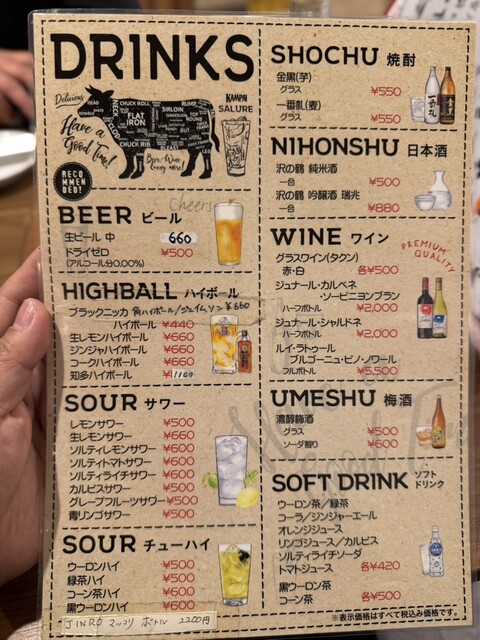 DRINKS
Delicious
Have a
Good Time!
HEAD
NECK
CLOD
CHUCK ROLL
FLAT
IRON
CHUCK RIB
SIRLOIN
RUMP
TOP
ROUND
Beer & Wine
KAMPAI
SALURE
RECO
MMEN
DED!
BEER ビール
Cheers
生ビール 中 660
ドライゼロ ¥500
(アルコール分0.00%)
HIGHBALL ハイボール
ブラックニッカ 角ハイボール/ジェイムソン ¥660
ハイボール ¥440
生レモンハイボール ¥660
ジンジャハイボール ¥660
コークハイボール ¥660
知多ハイボール ¥1100
SOUR サワー
レモンサワー ¥500
生レモンサワー ¥660
ソルティレモンサワー ¥600
ソルティトマトサワー ¥600
ソルティライチサワー ¥600
カルピスサワー ¥500
グレープフルーツサワー ¥500
青リンゴサワー ¥500
SOUR チューハイ
ウーロンハイ ¥500
緑茶ハイ ¥500
コーン茶ハイ ¥600
黒ウーロンハイ ¥600
JINRO マッコリ ボトル 2200円
SHOCHU 焼酎
金黒(芋)
グラス ¥550
一番札(麦)
グラス ¥550
NIHONSHU 日本酒
沢の鶴 純米酒
一合 ¥500
沢の鶴 吟醸酒 瑞兆
一合 ¥880
WINE ワイン
PREMIUM
QUALITY
グラスワイン(タクン)
赤・白 各¥500
ジュナール・カルベネ
・ソービニヨンブラン
ハーフボトル ¥2,000
ジュナール・シャルドネ
ハーフボトル ¥2,000
ルイ・ラトゥール
ブルゴーニュ・ピノ・ノワール
フルボトル ¥5,500
UMESHU 梅酒
濃醇梅酒
グラス ¥500
ソーダ割り ¥600
SOFT DRINK ソフト
ドリンク
ウーロン茶/緑茶
コーラ/ジンジャーエール
オレンジジュース
リンゴジュース/カルピス
ソルティライチソーダ
トマトジュース 各¥420
黒ウーロン茶
コーン茶 各¥500
※表示価格はすべて税込み価格です。